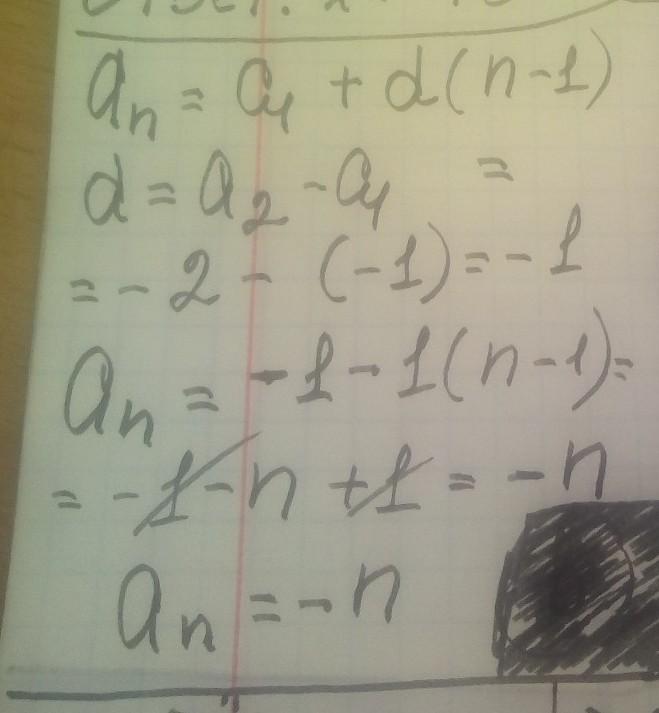 aₙ = a₁ + d(n-1)
d = a₂ - a₁ =
= - 2 - (-1) = - 1
aₙ = - 1 - 1(n-1) =
= - 1 - n + 1 = - n
aₙ = - n